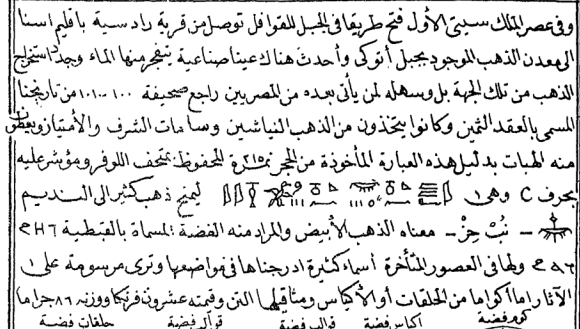 وفى عصر الملك سيتى الأول فتح طريقا فى الجبل للقوافل توصل من قرية رادسية باقليم اسنا
الى معدن الذهب الموجود بجبل أتوكى وأحدث هناك عينا صناعية يتفجر منها الماء وجدّد استخراج
الذهب من تلك الجهة بل وسهله لمن يأتى بعده من المصريين راجع صحيفة ١٠٠ - ١٠١ من تاريخنا
المسمى بالعقد الثمين وكانوا يتخذون من الذهب النياشين وسامات الشرف والأمتياز ويعطون
منه الهبات بدليل هذه العبارة المأخوذة من الحجر نمرة ٢١٥ المحفوظ بمتحف اللوفر ومؤشر عليه
بحرف C وهى ١ ليمنح ذهب كثير الى النديم
— نُبْ حِزْ — معناه الذهب الأبيض والمراد منه الفضة المسماة بالقبطية
ولها فى العصور المتأخرة أسماء كثيرة ادرجناها فى مواضعها وترى مرسومة على ١
الآثار اما أكواما من الحلقات أو الأكياس ومثاقيلها التن وقيمته عشرون فرنكا ووزنه ٨٦ جراما
كوم فضة اكياس فضة قالب فضة قوالب فضة حلقات فضة